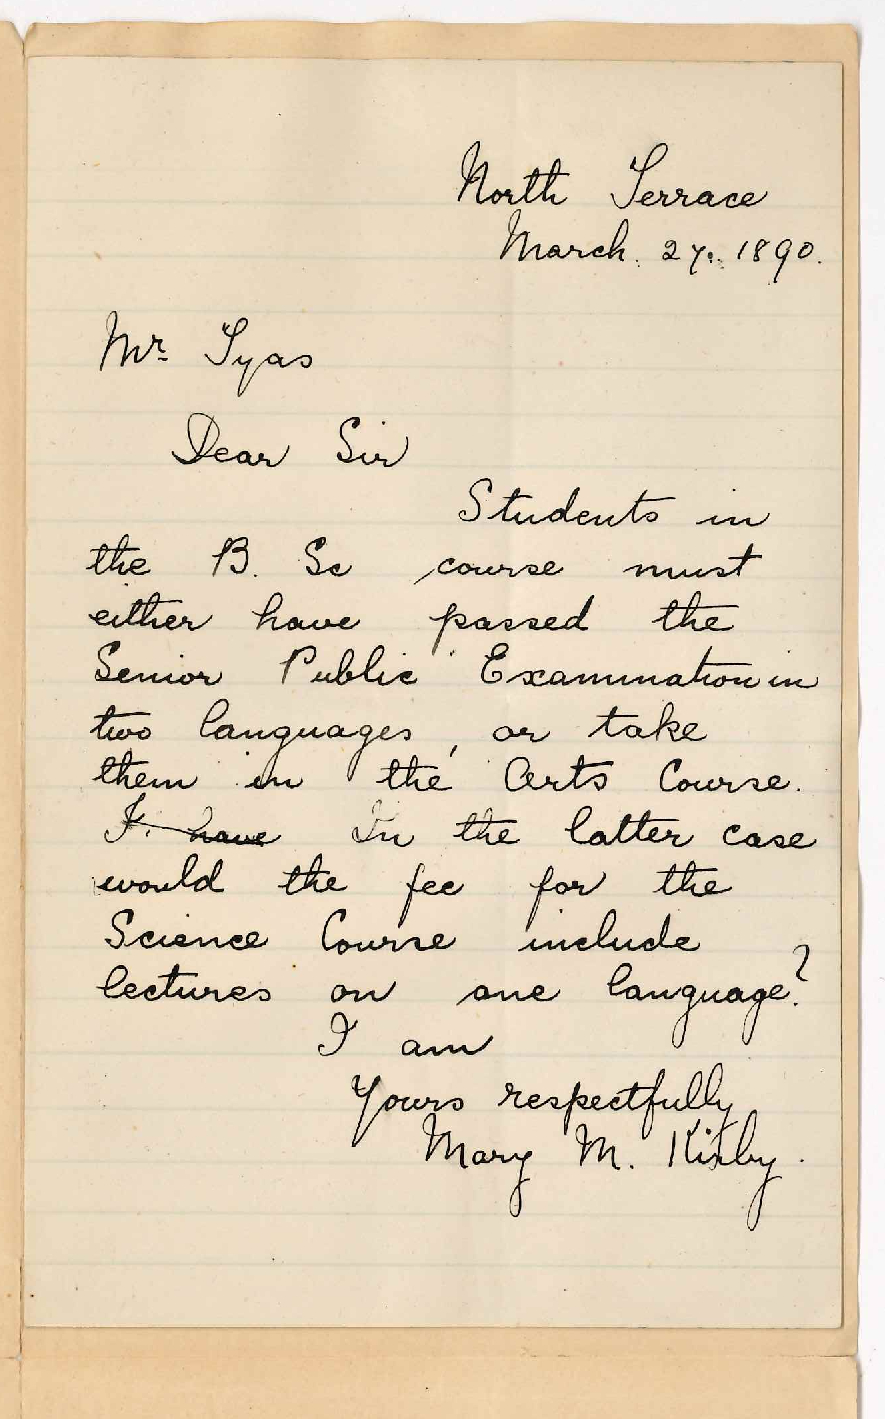 North Terrace
March. 27. 1890.
Mr. Tyas
Dear Sir
Students in
the B. Sc course must
either have passed the
Senior Public Examination in
two languages, or take
them in the Arts Course.
I have In the latter case
would the fee for the
Science Course include
lectures on one language?
I am
Yours respectfully
Mary M. Kirby.